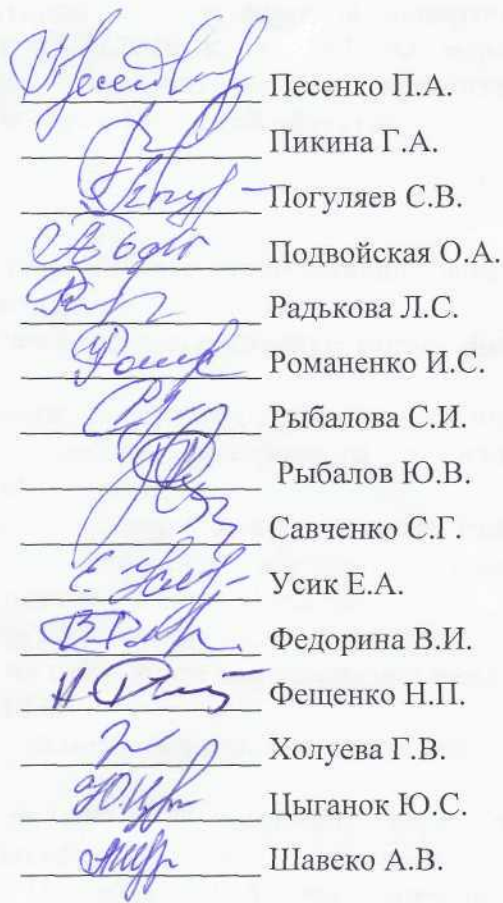 Песенко П.А.
Пикина Г.А.
Погуляев С.В.
Подвойская О.А.
Радькова Л.С.
Романенко И.С.
Рыбалова С.И.
Рыбалов Ю.В.
Савченко С.Г.
Усик Е.А.
Федорина В.И.
Фещенко Н.П.
Холуева Г.В.
Цыганок Ю.С.
Шавеко А.В.